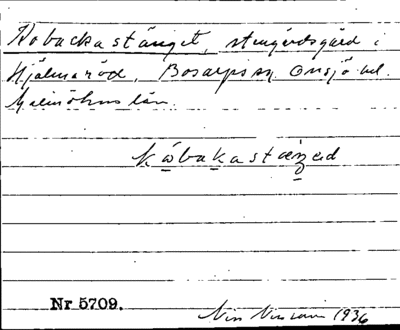 Kobackastänget, stengärdsgård i
Hjälmaröd, Bosarps sn, Onsjö hd.
Malmöhus län.
kåbakastæŋed
Nr 5709.
1936